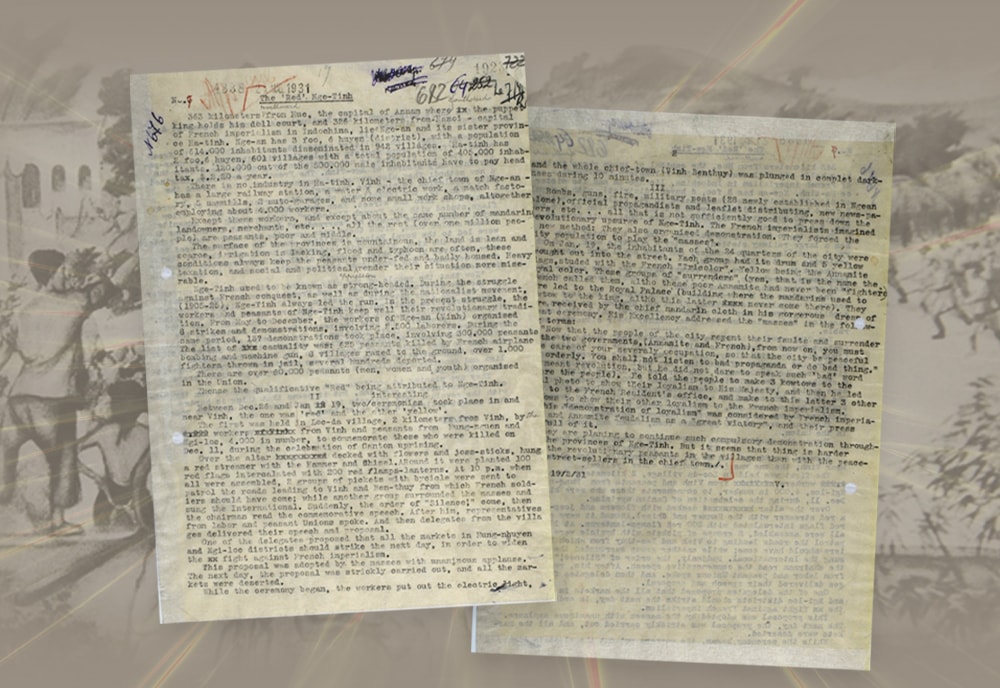 1931
No.7
The 'Red' Nge-Tinh
363 kilometers from Hue, the capital of Annam where the puppet
king holds his doll court, and 326 kilometers from Hanoi - capital
of French imperialism in Indochina, lie Nge-an and its sister provin-
ce Ha-tinh. Nge-an has 5 foo, 6 huyen (districts), with a population
of 614,000 inhabitants disseminated in 942 villages. Ha-tinh has
2 foo, 6 huyen, 601 villages with a total population of 400,000 inhab-
itants. 120,000 out of the 200,000 male inhabitants have to pay head
tax, a year.
There is no industry in Ha-tinh. Vinh - the chief town of Nge-an -
has a large railway station, a water & electric work, a match facto-
ry, 2 sawmills, 2 auto-garages, and some small work shops, altogether
employing about 4,000 workers.
Except these workers, and except about the same number of mandarins
landowners, merchants, etc., all the rest (over one million peo-
ple) are peasants, poor and middle.
The surface of the provinces is mountainous, the land is lean and
scarce, irrigation is lacking, flood and typhoon are often, these
conditions always keep the peasants under-fed and badly housed. Heavy
taxation, and social and political render their situation more mise-
rable.
Nge-Tinh used to be known as strong-headed. During the struggle
against French conquest, as well as during the nationalist movement
(1905-25), Nge-Tinh always led the run. In the present struggle, the
workers and peasants of Nge-Tinh keep well their revolutionary tradi-
tion. From May to December, the workers of Nge-an (Vinh) organised
6 strikes and demonstrations, involving workers. During the
same period, 137 demonstrations took place, involving 300,000 peasants
The list of casualty was: peasants killed by French airplane
bombing and machine gun, villages razed to the ground, over 1,000
fighters thrown in jail, and several hundreds deported.
There are over peasants (men, women and youth) organised
in the Union.
Thence the qualificative "Red" being attributed to Nge-Tinh.
II
interesting
Between Dec. and Jan 19, two ceremonies took place in and
near Vinh, the one was 'red' and the other 'yellow'.
The first was held in Loc-da village, 2 kilometers from Vinh, by the
workers from Vinh and peasants from Hung-nguen and
Ngi-loc, 4,000 in number, to commenorate those who were killed on
Dec. 11, during the celebration of Canton uprising.
Over the altar decked with flowers and joss-sticks, hung
a red streamer with the Hammer and Shisel. Around it were planted 100
red flags intercalated with 200 red flamps-lanterns. At 10 p.m. when
all were assembled, 2 groups of pickets with bycicle were sent to
patrol the roads leading to Vinh and Ben-thuy from which French sold-
iers should have come; while another group surrounded the masses and
sung the international. Suddenly, the order of "silence" come, then
the chairman read the commemorative speech. After him, representatives
from labor and peasant Unions spoke. And then delegates from the villa
ges delivered their speech and proposal.
One of the delegates proposed that all the markets in Hung-nhuyen
and Ngi-loc districts should strike the next day, in order to widen
the fight against French imperialism.
This proposal was adopted by the masses with unanimous applause.
The next day, the proposal was strickly carried out, and all the mar-
kets were deserted.
While the ceremony began, the workers put out the electric light,
and the whole chief-town (Vinh Benthuy) was plunged in complet dark-
ness during 10 minutes.
III
Bombs, guns, fire, military posts (55 newly established in Ngean
alone), official propagandists and leaflet distributing, new news-pa-
pers, etc... all that is not sufficiently good to press down the
revolutionary insurge of Nge-tinh. The French imperialists imagined
a new method: They also organised demonstration. They forced the
city population to play the "masses".
On Jan. the inhabitants of the 24 quarters of the city were
brought out into the street. Each group had its drum and 5 yellow
flags, studed with the French "Tricolor". Yellow being the Annamite
royal color. These groups of "surrenders" (yes, that is the name the
French gave them, altho these poor Annamites had never been "fighters")
were led to the Royal Palace (building where the mandarins used to
kowtow to the king, altho this latter never gone there). They
were received by the chief mandarin cloth in his gorgeous dress of
court ceremony. His Excellency addressed the "masses" in the follow-
ing terms:
"Now that the people of the city repent their faults and surrender
to the two governments, (Annamite and French), from now on, you must
keep your severaly occupation, so that the city be peaceful
and orderly. You must not listen to bad propaganda or do bad thing."
(He meant revolution, but he did not dare to speak such "bad" word
before the people). Then he told the people to make 3 Kowtows to the
royal photo to show their loyalism to His Majesty, and then he led
them to the French Resident's office, and make to this latter 3 other
kowtows to show their other loyalism to the French imperialism.
This "demonstration of loyalism" was considered by French imperia-
lism and Annamite feudalism as a "great victory", and their press
was full of it.
They are planning to continue such compulsory demonstration through-
out the provinces of Nge-Tinh. But it seems that thing is harder
with the revolutionary peasants in the villages than with the peace-
ful street-sellers in the chief town./.
19/2/31